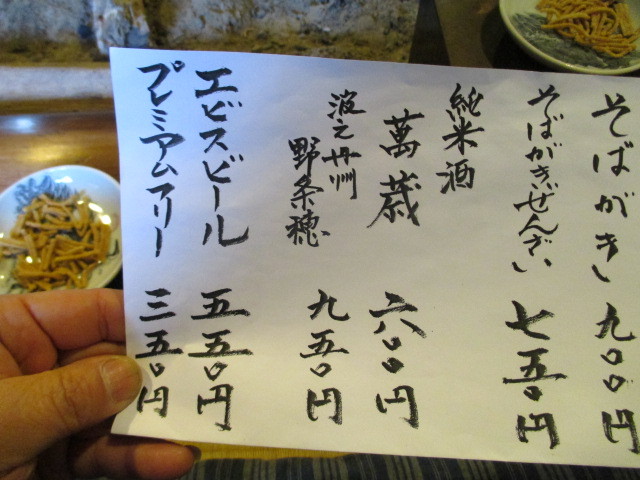 そばがき 九〇〇円
そばがきぜんざい 七五〇円
純米酒
萬歳 六八〇円
波之丹州
野条穂 九五〇円
エビスビール 五五〇円
プレミアムフリー 三五〇円